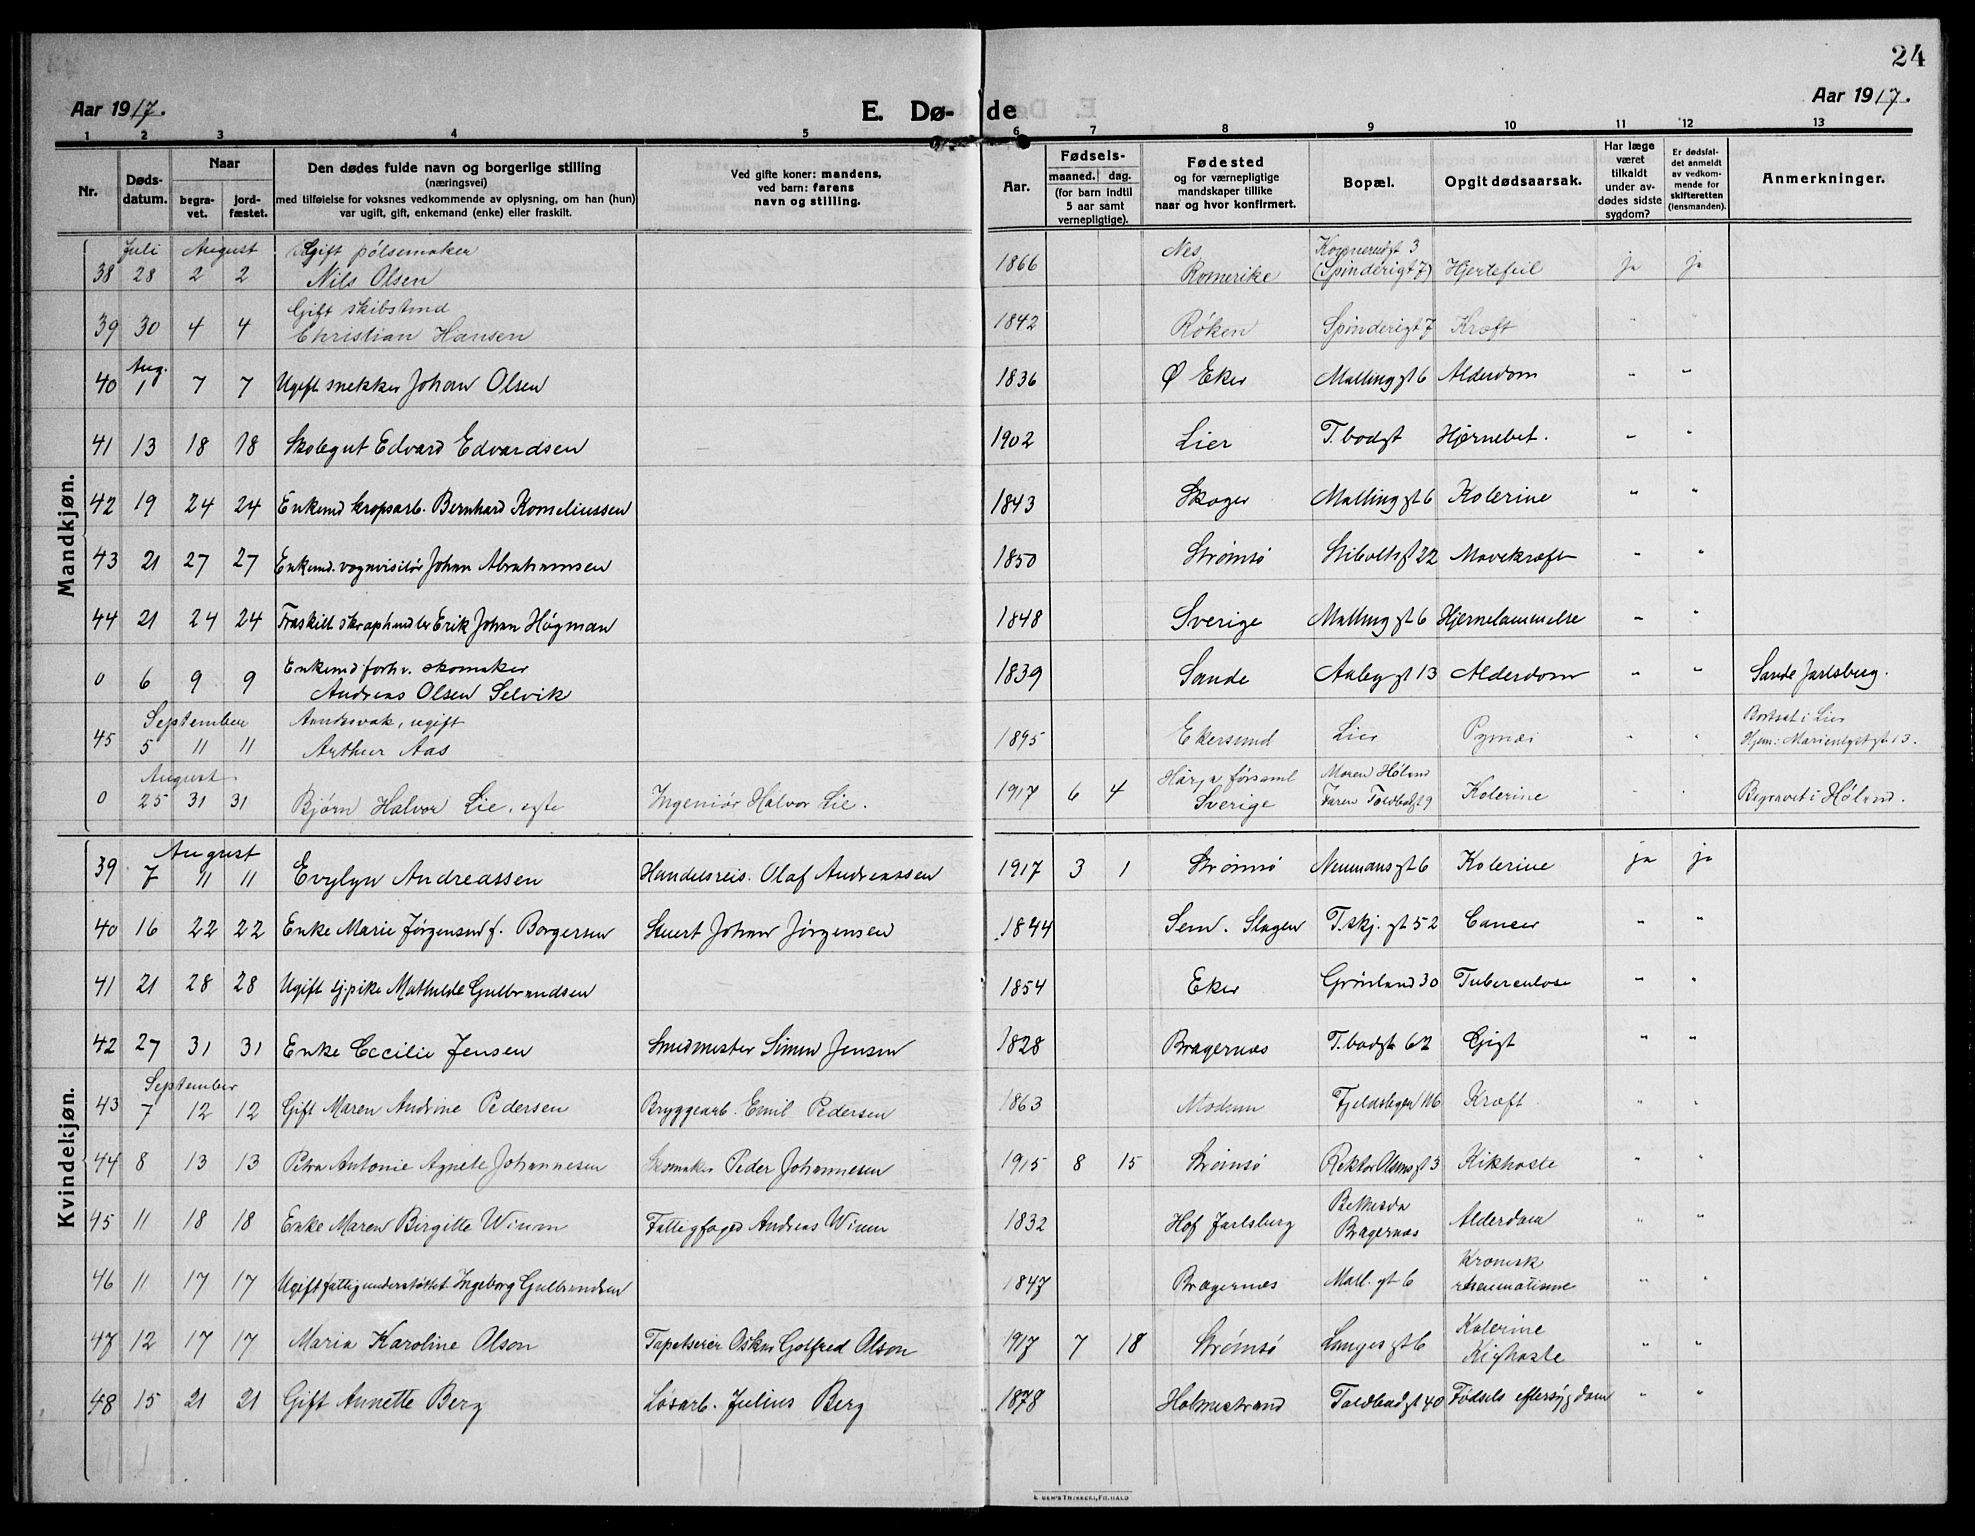 24
Aar 1917.
E. Dø-
de
Aar 1917.
1 2 3 4 5 6 7 8 9 10 11 12 13
Nr.
Døds-
datum.
Naar
begra-
vet.
jord-
fæstet.
Den dødes fulde navn og borgerlige stilling
(næringsvei)
med tilføielse for voksnes vedkommende av oplysning, om han (hun)
var ugift, gift, enkemand (enke) eller fraskilt.
Ved gifte koner: mandens,
ved barn: farens
navn og stilling.
Aar.
Fødsels-
maaned. dag.
(for barn indtil
5 aar samt
vernepligtige).
Fødested
og for værnepligtige
mandskaper tillike
naar og hvor konfirmert.
Bopæl.
Opgit dødsaarsak.
Har læge
været
tilkaldt
under av-
dødes sidste
sygdom?
Er dødsfal-
det anmeldt
av vedkom-
mende for
skifteretten
(lensmanden).
Anmerkninger.
Mandkjøn.
Juli August Gift pølsemaker Nes
38 28 2 2 Nils Olsen 1866 Romerike (Spinderigt 7) Hjertefeil ja ja
Gift skibstmd
39 30 4 4 Christian Hansen 1842 Røken Spinderigt 7 Kræft " "
Aug.
40 1 7 7 Ugift snekker Johan Olsen 1836 Ø Eker Malling gt 6 Alderdom " "
41 13 18 18 Skolegut Edvard Edvardsen 1902 Lier T. bodgt Hjernebet. " "
42 19 24 24 Enkemd kropsarb. Bernhard Korneliussen 1843 Skoger Malling gt 6 Kolerine " "
43 21 27 27 Enkemd. vognvisitør Johan Abrahamsen 1850 Strømsø Stiboltsgt 22 Mavekræft " "
44 21 24 24 Fraskilt skraphandler Erik Johan Høgman 1848 Sverige Malling gt 6 Hjernelammelse " "
Enkemd forhv. skomaker
0 6 9 9 Andreas Olsen Selvik 1839 Sande Aaby gt 13 Alderdom " " Sande Jarlsberg.
September ugift Bortsat i Lier
45 5 11 11 Arthur Aas 1895 Ekersund Lier " " Hjem: Marienlyst gt 13.
August. Sverige
0 25 31 31 Bjørn Halvor Lie, egte Ingeniør Halvor Lie. 1917 6 4 Kolerine " " Begravet i Høland.
Kvindekjøn.
August
39 7 11 11 Evylyn Andreassen Handelsreis. Olaf Andreassen 1917 3 1 Strømsø Neumans gt 6 Kolerine ja ja
40 16 22 22 Enke Marie Jørgensen f. Borgersen Stuert Johan Jørgensen 1844 Sem. Slagen T. skj. gt 52 Cancer " "
41 21 28 28 Ugift tj.pike Mathilde Gulbrandsen 1854 Eker Grønland 30 Tuberculose " "
42 27 31 31 Enke Cecilie Jensen Smedmester Simen Jensen 1828 Bragernæs T. bodgt 62 Gigt " "
September
43 7 12 12 Gift Maren Andrine Pedersen Bryggearb. Emil Pedersen 1863 Modum Kræft " "
44 8 13 13 Petra Antonie Agnete Johannesen Skomaker Peder Johannesen 1915 8 15 Strømsø Rektor Olsens gt 3 Kikhoste " "
45 11 18 18 Enke Maren Birgitte Wium Fattigfoged Andreas Wium 1832 Hof Jarlsberg Bethesda Bragernæs Alderdom " "
46 11 17 17 Ugift fattigunderstøttet Ingeborg Gulbrandsen 1847 Bragernæs Mall. gt 6 Kronisk rheumatisme " "
47 12 17 17 Maria Karoline Olson Tapetserer Oskar Gotfred Olson 1917 7 18 Strømsø Langes gt 6 Kolerine Kighoste " "
48 15 21 21 Gift Annette Berg Løsarb. Julius Berg 1878 Holmestrand Toldbodgt 40 Fødsels eftersygdom " "